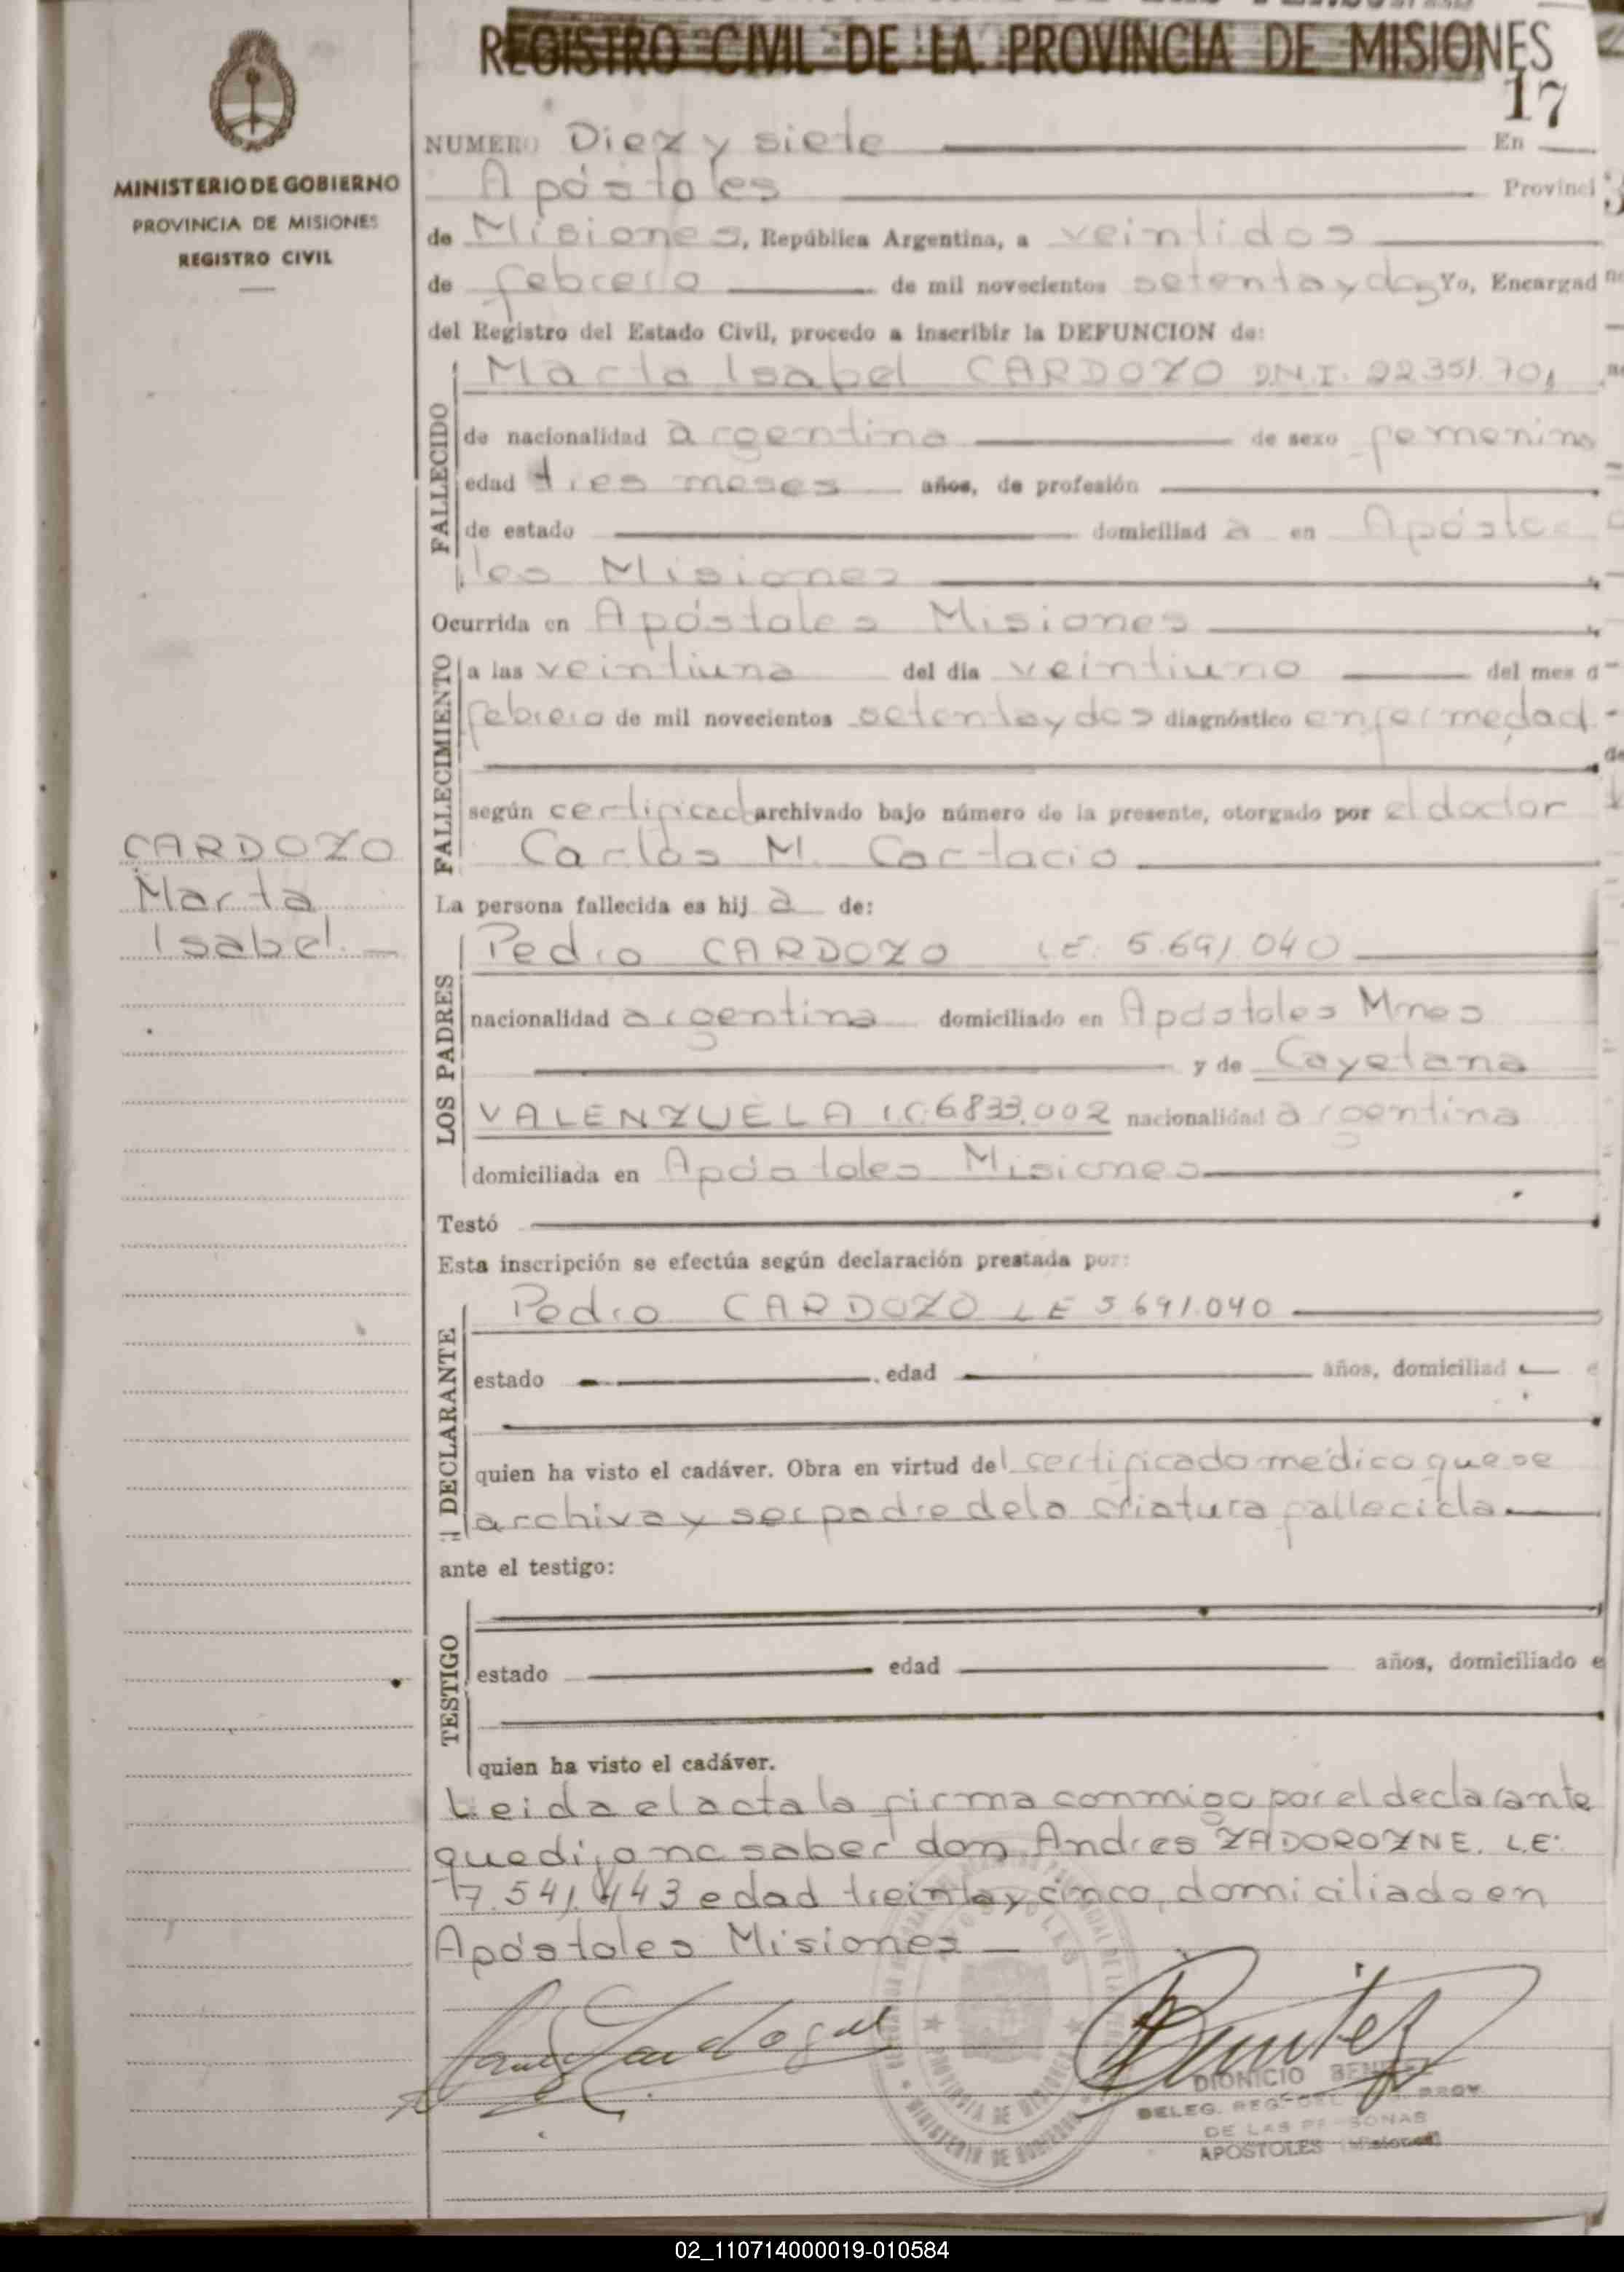 REGISTRO CIVIL DE LA PROVINCIA DE MISIONES
17
MINISTERIO DE GOBIERNO
PROVINCIA DE MISIONES
REGISTRO CIVIL
NUMERO Diez y siete En
Apóstoles Provinci
de Misiones, República Argentina, a veintidos
de febrero de mil novecientos setenta y dos Yo, Encargad
del Registro del Estado Civil, procedo a inscribir la DEFUNCION de:
FALLECIDO
Marta Isabel CARDOZO D.N.I. 22.351.701
de nacionalidad argentina de sexo femenino
edad tres meses años, de profesión
de estado domiciliad a en Apósto
les Misiones
Ocurrida en Apóstoles Misiones
FALLECIMIENTO
a las veintiuna del día veintiuno del mes d
febrero de mil novecientos setenta y dos diagnóstico enfermedad
según certificad archivado bajo número de la presente, otorgado por el doctor
Carlos M.
CARDOZO
Marta
Isabel.
La persona fallecida es hij a de:
LOS PADRES
Pedro CARDOZO L.E. 5.691.040
nacionalidad argentina domiciliado en Apóstoles Mnes
y de Cayetana
VALENZUELA I.C. 6.833.002 nacionalidad argentina
domiciliada en Apóstoles Misiones
Testó
Esta inscripción se efectúa según declaración prestada por:
DECLARANTE
Pedro CARDOZO L E 5 691.040
estado edad años, domiciliad
quien ha visto el cadáver. Obra en virtud del certificado médico que se
archiva y ser padre de la criatura fallecida
ante el testigo:
TESTIGO
estado edad años, domiciliado e
quien ha visto el cadáver.
Leida el acta la firma conmigo por el declarante
que dijo no saber don Andres ZADOROZNE. L.E.
7.541.443 edad treinta y cinco, domiciliado en
Apóstoles Misiones
Benitez
DIONICIO BENITEZ
DELEG. REG. PROV.
DE LAS PERSONAS
APOSTOLES (Misiones)
PROVINCIA DE MISIONES
MINISTERIO DE GOBIERNO
02_110714000019-010584